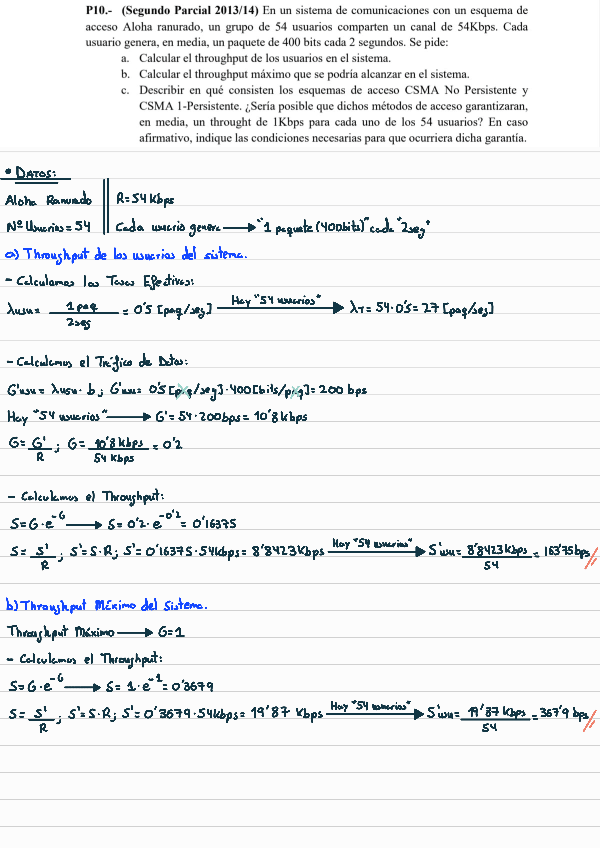 P10.- (Segundo Parcial 2013/14) En un sistema de comunicaciones con un esquema de
acceso Aloha ranurado, un grupo de 54 usuarios comparten un canal de 54Kbps. Cada
usuario genera, en media, un paquete de 400 bits cada 2 segundos. Se pide:
a. Calcular el throughput de los usuarios en el sistema.
b. Calcular el throughput máximo que se podría alcanzar en el sistema.
c. Describir en qué consisten los esquemas de acceso CSMA No Persistente y
CSMA 1-Persistente. ¿Sería posible que dichos métodos de acceso garantizaran,
en media, un throught de 1Kbps para cada uno de los 54 usuarios? En caso
afirmativo, indique las condiciones necesarias para que ocurriera dicha garantía.
• DATOS:
Aloha Ranurado R=54 Kbps
Nº Usuarios = 54 Cada usuario genera → "1 paquete (400bits)" cada "2seg"
a) Throughput de los usuarios del sistema.
- Calculamos las Tasas Efectivas:
λusu = 1 paq / 2seg = 0'5 [paq/seg] Hay "54 usuarios" → λT = 54·0'5 = 27 [paq/seg]
- Calculamos el Tráfico de Datos:
G'usu = λusu · b ; G'usu = 0'5 [paq/seg] · 400 [bits/paq] = 200 bps
Hay "54 usuarios" → G' = 54·200bps = 10'8 kbps
G = G' / R ; G = 10'8 kbps / 54 Kbps = 0'2
- Calculamos el Throughput:
S = G·e^-G → S = 0'2·e^-0'2 = 0'16375
S = S' / R ; S' = S·R ; S' = 0'16375·54Kbps = 8'8423 Kbps Hay "54 usuarios" → S'usu = 8'8423 Kbps / 54 = 163'75 bps
b) Throughput Máximo del Sistema.
Throughput Máximo → G=1
- Calculamos el Throughput:
S = G·e^-G → S = 1·e^-1 = 0'3679
S = S' / R ; S' = S·R ; S' = 0'3679·54kbps = 19'87 Kbps Hay "54 usuarios" → S'usu = 19'87 Kbps / 54 = 367'9 bps